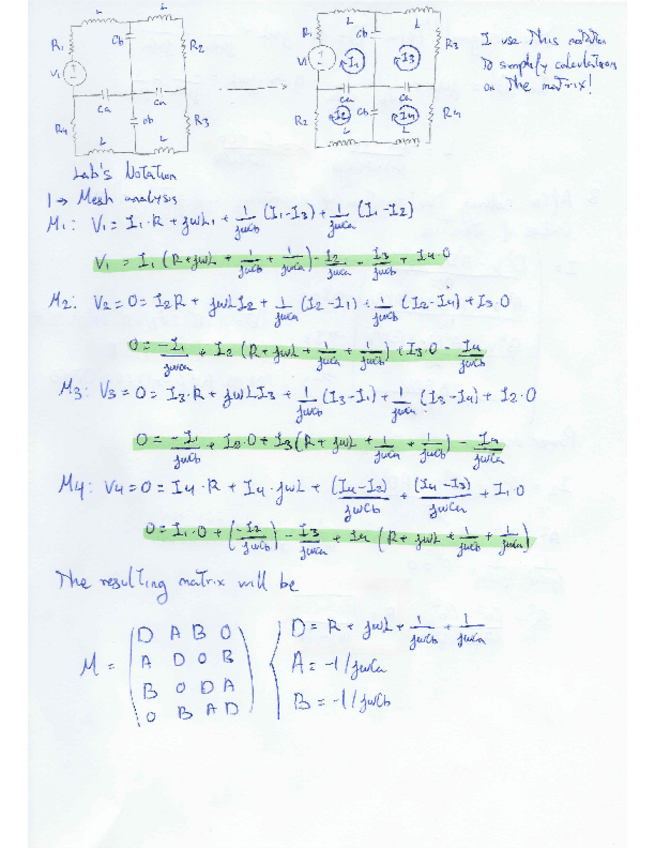 L L L L
R1 Cb R2 R1 Cb R3
V1 V1 I1 I3
Ca Ca Ca Ca
R4 Cb R3 R2 I2 Cb I4 R4
L L L L
I use this notation
to simplify calculations
on the matrix!
Lab's Notation
1 → Mesh analysis
M1: V1 = I1·R + jωLI1 + 1/jωCb (I1-I3) + 1/jωCa (I1-I2)
V1 = I1 (R+jωL + 1/jωCb + 1/jωCa) - I2/jωCa - I3/jωCb + I4·0
M2: V2 = 0 = I2R + jωLI2 + 1/jωCa (I2-I1) + 1/jωCb (I2-I4) + I3·0
0 = -I1/jωCa + I2 (R+jωL + 1/jωCa + 1/jωCb) + I3·0 - I4/jωCb
M3: V3 = 0 = I3·R + jωLI3 + 1/jωCb (I3-I1) + 1/jωCa (I3-I4) + I2·0
0 = -I1/jωCb + I2·0 + I3 (R+jωL + 1/jωCa + 1/jωCb) - I4/jωCa
M4: V4 = 0 = I4·R + I4·jωL + (I4-I2)/jωCb + (I4-I3)/jωCa + I1·0
0 = I1·0 + (-I2/jωCb) - I3/jωCa + I4 (R+jωL + 1/jωCb + 1/jωCa)
The resulting matrix will be
M = (D A B 0
A D 0 B
B 0 D A
0 B A D)
D = R + jωL + 1/jωCb + 1/jωCa
A = -1/jωCa
B = -1/jωCb